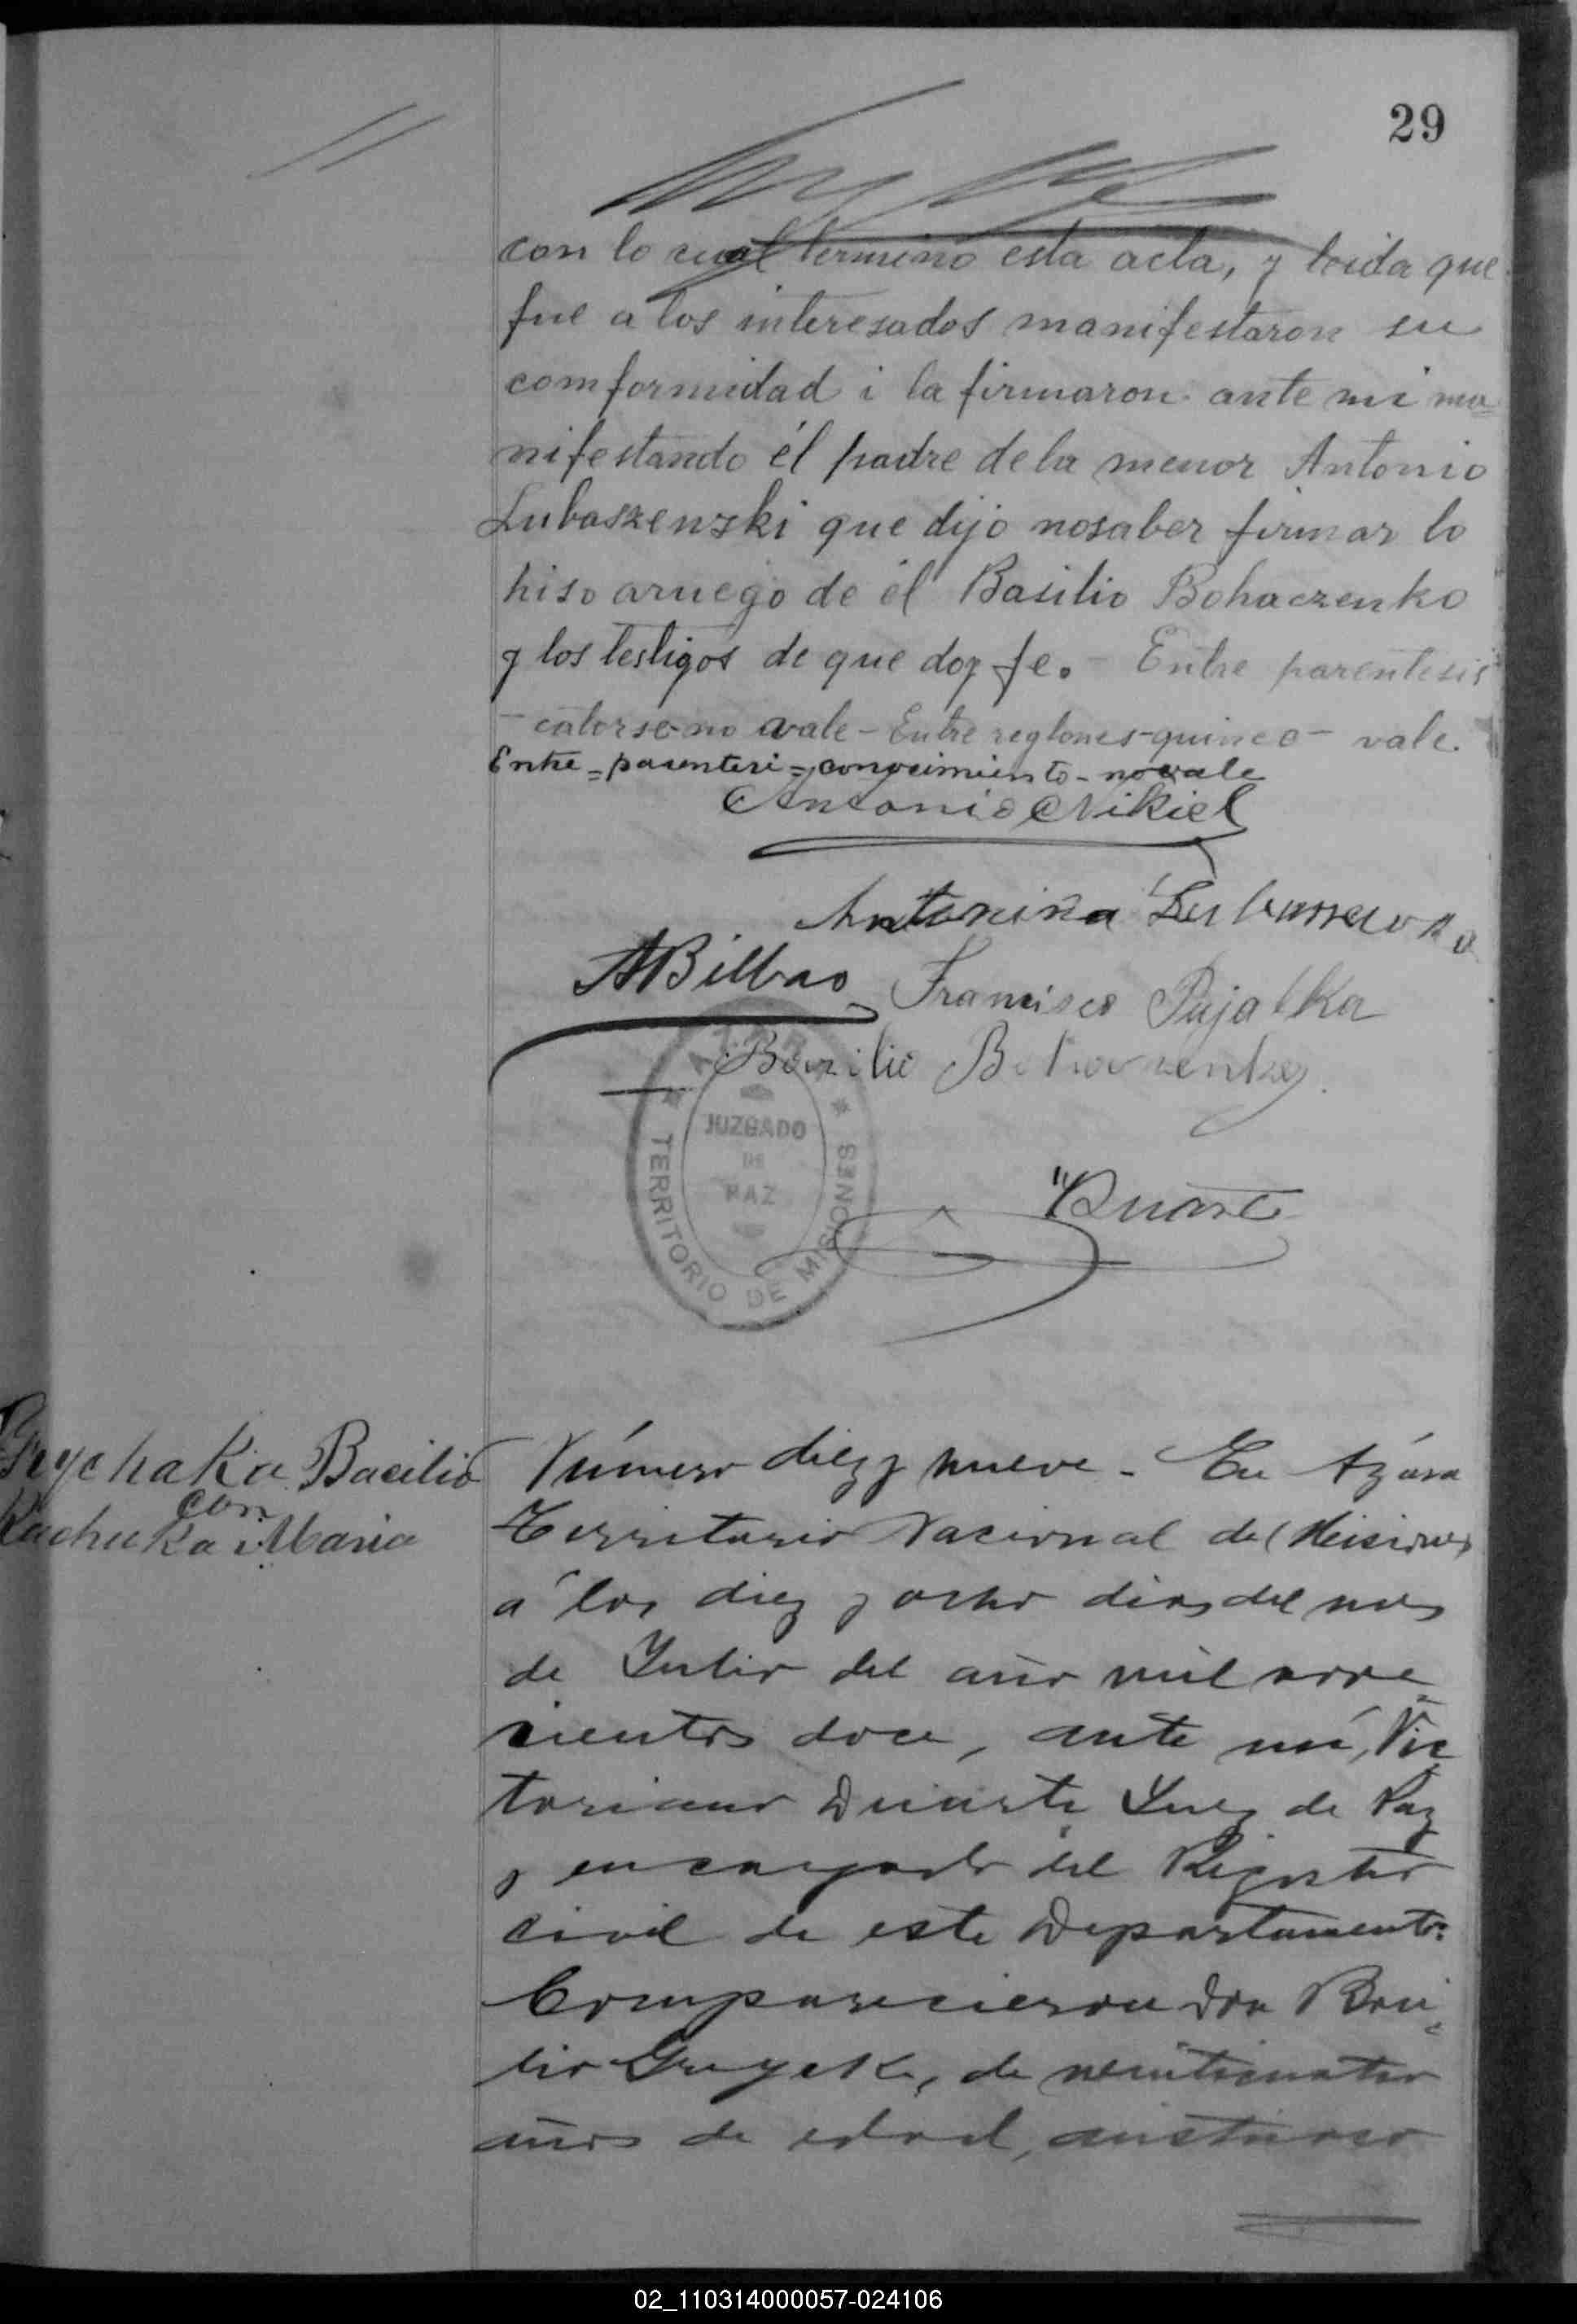 29
con lo cual termino esta acta, y leida que
fue a los interesados manifestaron su
comformidad i la firmaron ante mi ma
nifestando él padre de la menor Antonio
Lubaszenzki que dijo nosaber firmar lo
hiso aruego de él Basilio Bohaczenko
y los testigos de que doy fe. - Entre parentesis
- catorse no vale - Entre reglones - quince - vale.
Entre = parenteri = conocimiento - no vale
Antonio Nikiel
Antonina
ABilbao Francisco Pajatka
Basilio
AZARA
JUZGADO
DE
PAZ
TERRITORIO DE MISIONES
Duarte
Grychaka Bacilio
con
Kachuka Maria
Número diez y nueve - En Azára
Territorio Nacional de Misiones
á los diez y ocho dias del mes
de Julio del año mil nove
cientos doce, ante mí, Vic
toriano Duarte Juez de Paz
y encargado del Registro
civil de este Departamento:
Comparecieron don Basi
lio de veinticuatro
años de edad, austriaco
02_110314000057-024106